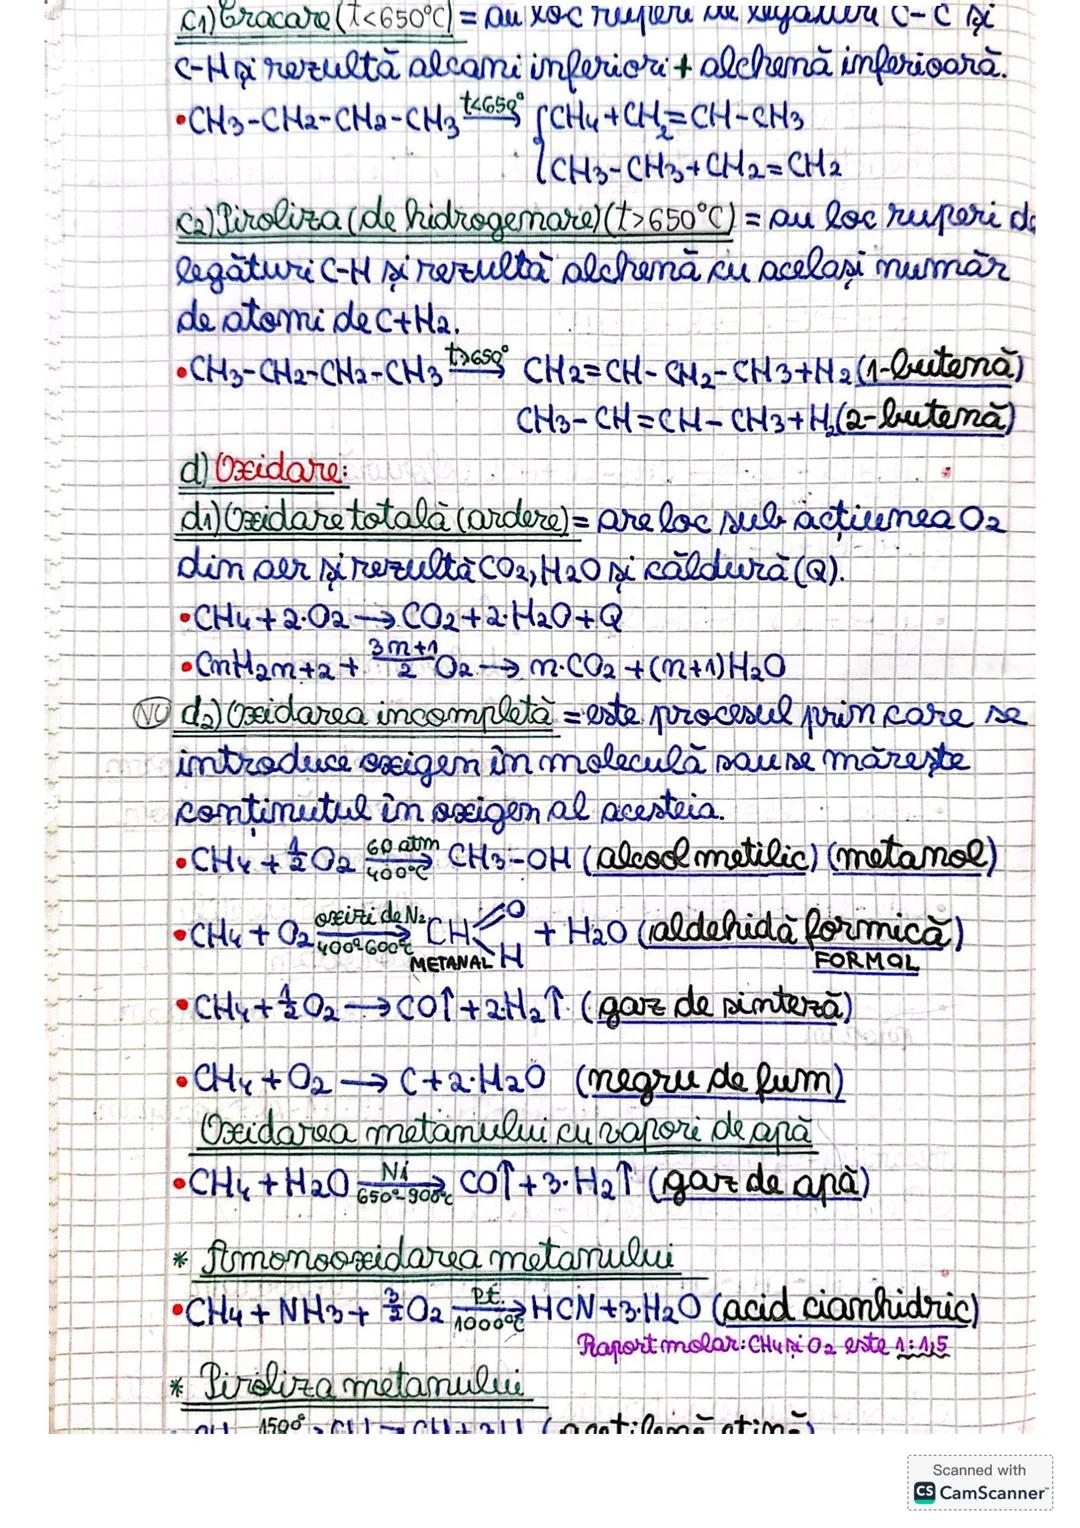 C1) Cracare (t<650°C) = au loc ruperi de legături C-C și
C-H și rezultă alcani inferiori + alchenă inferioară.
• CH3-CH2-CH2-CH3 t<650° → { CH4 + CH2=CH-CH3
CH3-CH3 + CH2=CH2
C2) Piroliza (de hidrogenare) (t>650°C) = au loc ruperi de
legături C-H și rezultă alchenă cu același număr
de atomi de C+H2.
• CH3-CH2-CH2-CH3 t>650° → CH2=CH-CH2-CH3+H2 (1-butenă)
CH3-CH=CH-CH3+H2 (2-butenă)
d) Oxidare:
d1) Oxidare totală (ardere) = are loc sub acțiunea O2
din aer și rezultă CO2, H2O și căldură (Q).
• CH4 + 2·O2 → CO2 + 2·H2O + Q
• CnH2n+2 + 3n+1/2 O2 → n·CO2 + (n+1)H2O
NU d2) Oxidarea incompletă = este procesul prin care se
introduce oxigen în moleculă sau se mărește
conținutul în oxigen al acesteia.
• CH4 + 1/2 O2 60 atm → 400°C CH3-OH (alcool metilic) (metanol)
• CH4 + O2 oxizi de N2 → 400°-600°C CH =O -H + H2O (aldehidă formică)
METANAL FORMOL
• CH4 + 1/2 O2 → CO↑ + 2·H2↑ (gaz de sinteză)
• CH4 + O2 → C + 2·H2O (negru de fum)
Oxidarea metanului cu vapori de apă
• CH4 + H2O Ni → 650°-900°C CO↑ + 3·H2↑ (gaz de apă)
* Amonooxidarea metanului
• CH4 + NH3 + 3/2 O2 Pt → 1000°C HCN + 3·H2O (acid cianhidric)
Raport molar: CH4 și O2 este 1:1,5
* Piroliza metanului
1500°
Scanned with
CS CamScanner